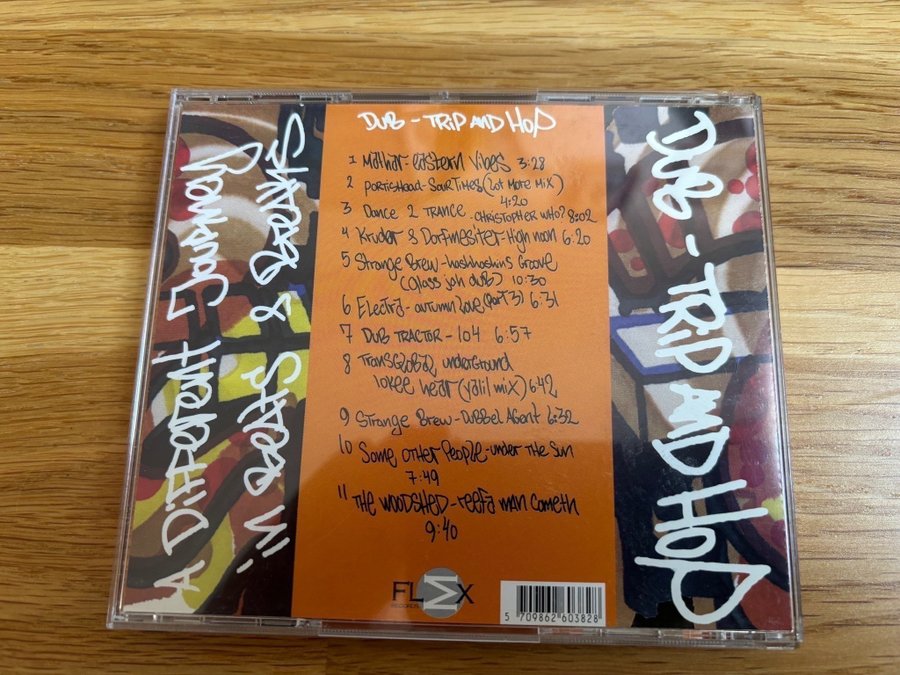 DUB - TRIP AND HOP
1 Mathar - eastern vibes 3:28
2 PORTISHEAD - SOUR TIMES (Lot More Mix)
4:20
3 Dance 2 TRANCE - CHRISTOPHER WHO? 8:02
4 Kruder & Dorfmesiter - High noon 6:20
5 Strange Brew - hashhashins Groove
(Glass joh dub) 10:30
6 Electra - autumn love (Part 3) 6:31
7 DUB TRACTOR - 104 6:57
8 TransGlobal underground
lokee hear (yalil mix) 6:42
9 Strange Brew - Dubbel Agent 6:32
10 Some OTHER People - under THE Sun
7:49
11 THE WOODSHED - reefa man Cometh
9:40
FLEX
RECORDS
5 709862 603828
A DIFFERENT JOURNEY
IN BEATS & BREAKS
DUB - TRIP AND HOP